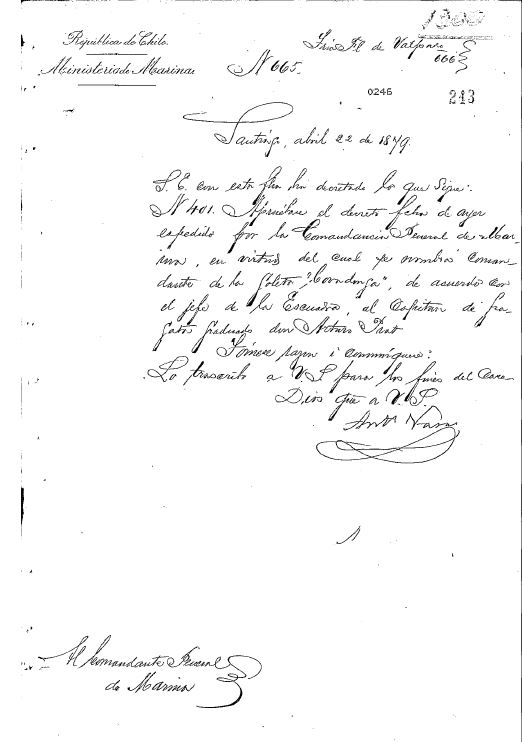 1300
República de Chile.
Ministerio de Marina.
N 665.
de Valparo
666
0246
243
Santiago, abril 22 de 1879.
S. E. con esta fha ha decretado lo que sigue:
N 401. Apruébase el decreto fcha de ayer
espedido por la Comandancia Jeneral de Mari
na, en virtud del cual se nombra Coman
dante de la Goleta "Covadonga", de acuerdo con
el jefe de la Escuadra, al Capitan de fra-
gata graduado don Arturo Prat
Tómese razon i comuníquese.
Lo trascribo a V.S. para los fines del Caso
Dios gue a V.S.
Al Comandante Jeneral
de Marina